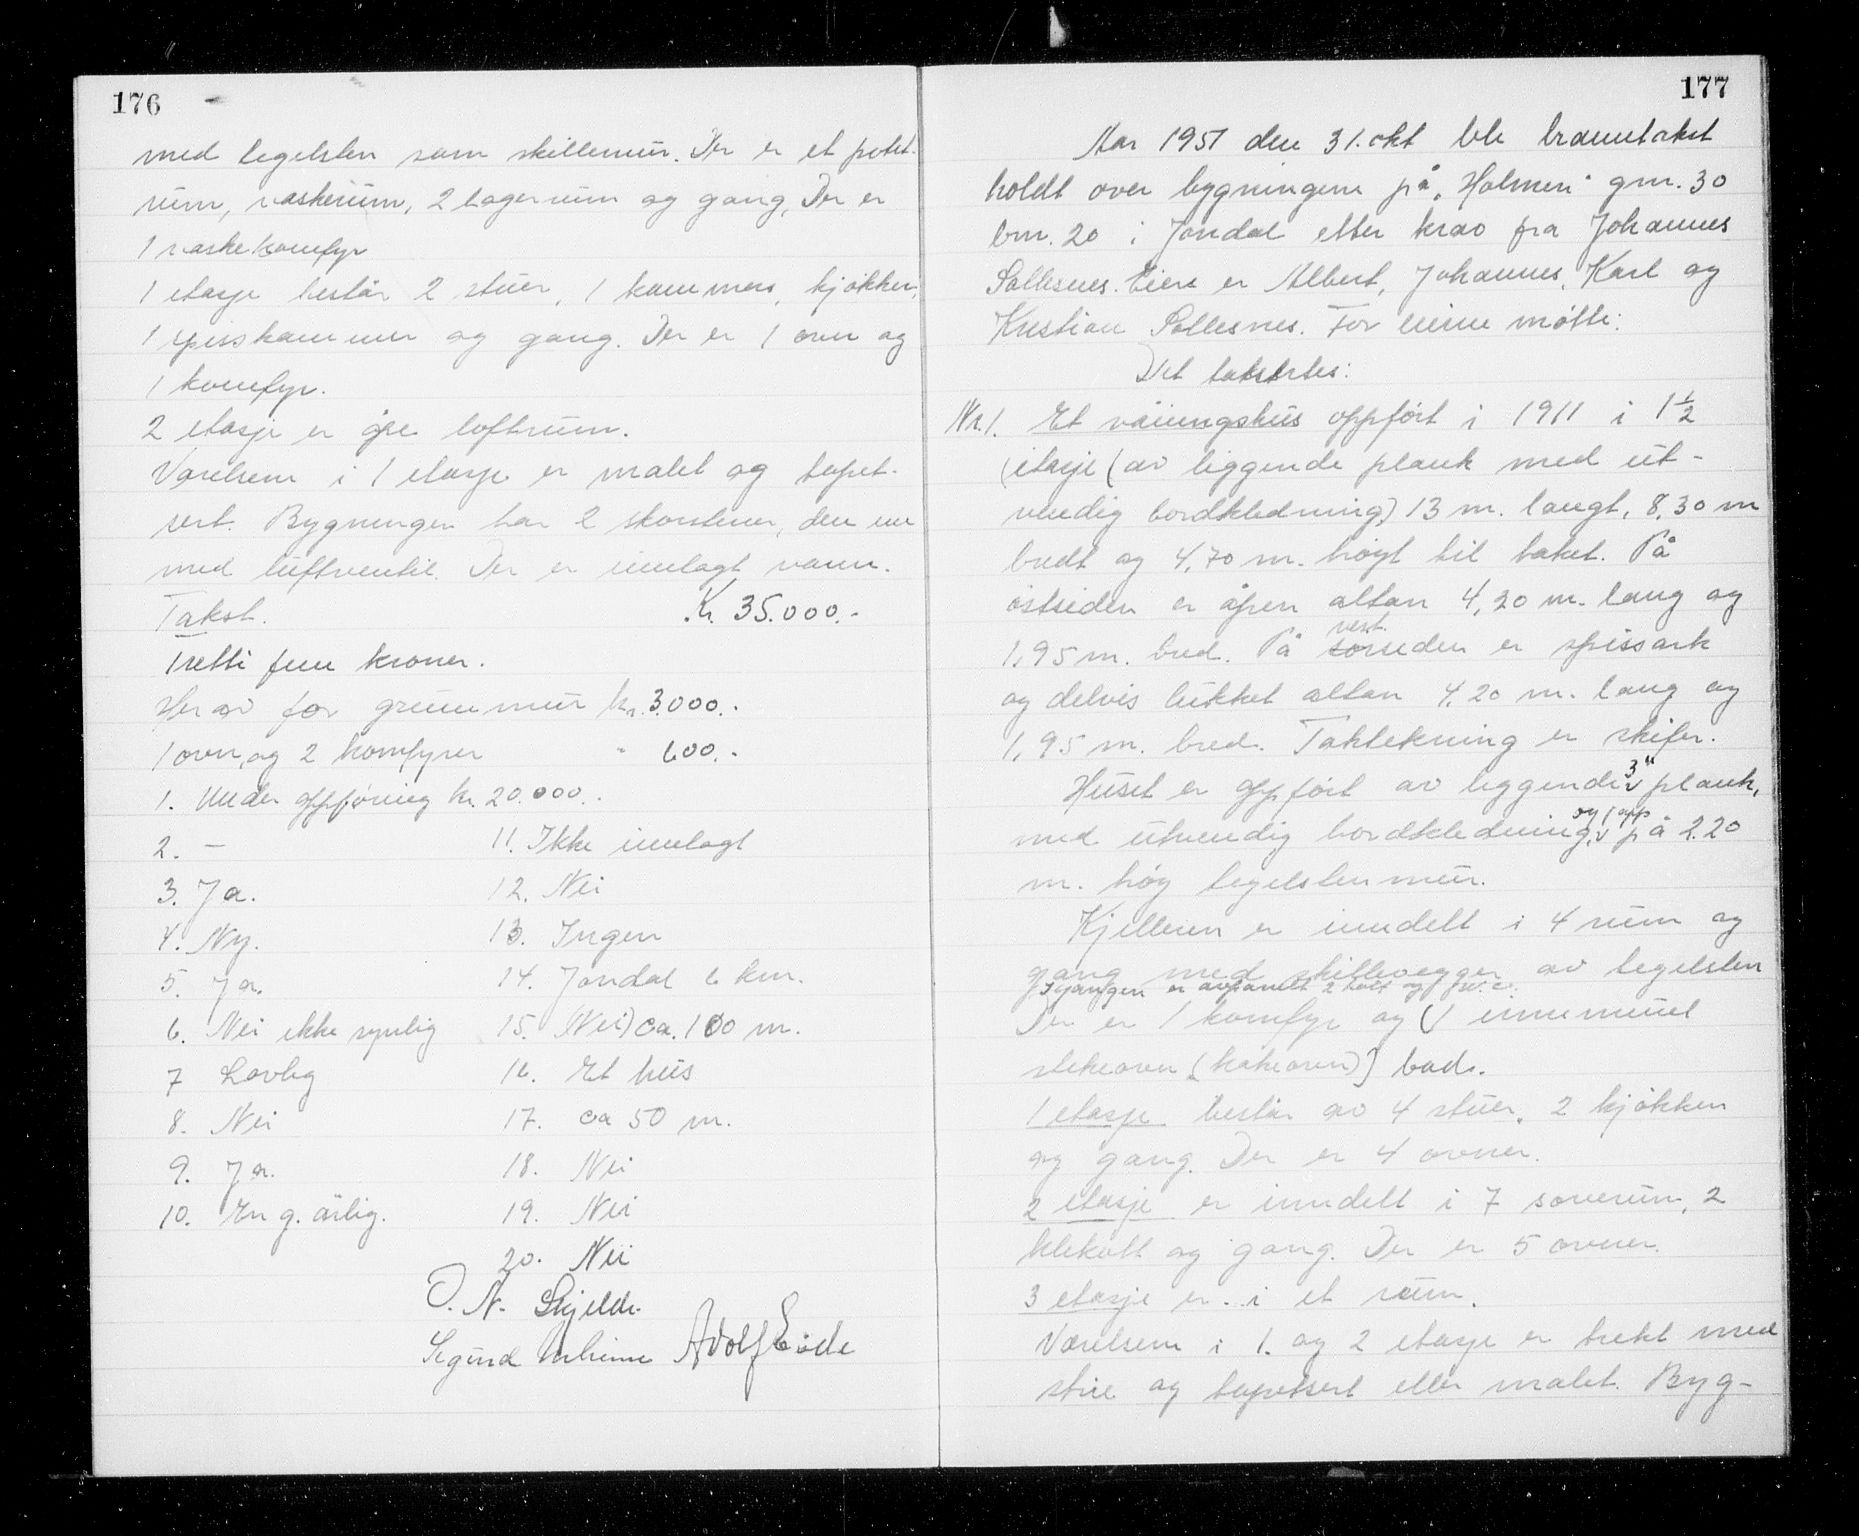 176
med tegelsten som skillemur. Der er et potet-
rum, vaskerum, 2 lagerrum og gang. Der er
1 vaskekomfyr
1 etasje består 2 stuer, 1 kammers, kjøkken,
1 spisskammer og gang. Der er 1 ovn og
1 komfyr.
2 etasje er åpe loftrum.
Værelsene i 1 etasje er malet og tapet-
sert. Bygningen har 2 skorstener, den ene
med luftventil. Der er innlagt vann.
Takst. Kr. 35.000.-
Tretti fem kroner.
Herav for grunnmur kr. 3.000.-
1 ovn og 2 komfyrer " 600.-
1. Under oppføring kr. 20.000.-
2. -
3. Ja.
4. Ny.
5. Ja.
6. Nei ikke synlig
7 Lovlig
8. Nei
9. Ja.
10. En g. årlig.
11. Ikke innlagt
12. Nei
13. Ingen
14. Jondal 6 km.
15. (Nei) ca. 100 m.
16. Et hus
17. ca 50 m.
18. Nei
19. Nei
20. Nei
O. N. Skjelde.
Sigurd Adolf Eide
177
Aar 1951 den 31. okt ble branntakst
holdt over bygningene på "Holmen" gnr. 30
bnr. 20 i Jondal etter krav fra Johannes
Sollesnes. Eiere er Albert, Johannes, Karl og
Kristian Sollesnes. For eierne møtte:
Det takstertes:
Nr. 1. Et våningshus oppført i 1911 i 1 1/2
etasje (av liggende plank med ut-
vendig bordkledning) 13 m. langt, 8,30 m
bredt og 4,70 m. høyt til taket. På
østsiden er åpen altan 4,20 m. lang og
1,95 m. bred. På vest. sørsiden er spissark
og delvis lukket altan 4,20 m. lang og
1,95 m. bred. Taktekning er skifer.
Huset er oppført av liggende 3" plank,
med utvendig bordkledning, og 1 app på 2.20
m. høg tegelstenmur.
Kjelleren er inndelt i 4 rum og
gang med skillevegger av tegelsten
I gangen er 2 og 1 w.c.
Der er 1 komfyr og (1 innemuret
stekeovn [kokeovn)] bad.
1 etasje består av 4 stuer, 2 kjøkken
og gang. Der er 4 ovner.
2 etasje er inndelt i 7 soverum, 2
klekott og gang. Der er 5 ovner.
3 etasje er i et rum.
Værelsene i 1. og 2 etasje er trekt med
strie og tapetsert eller malet. Byg-